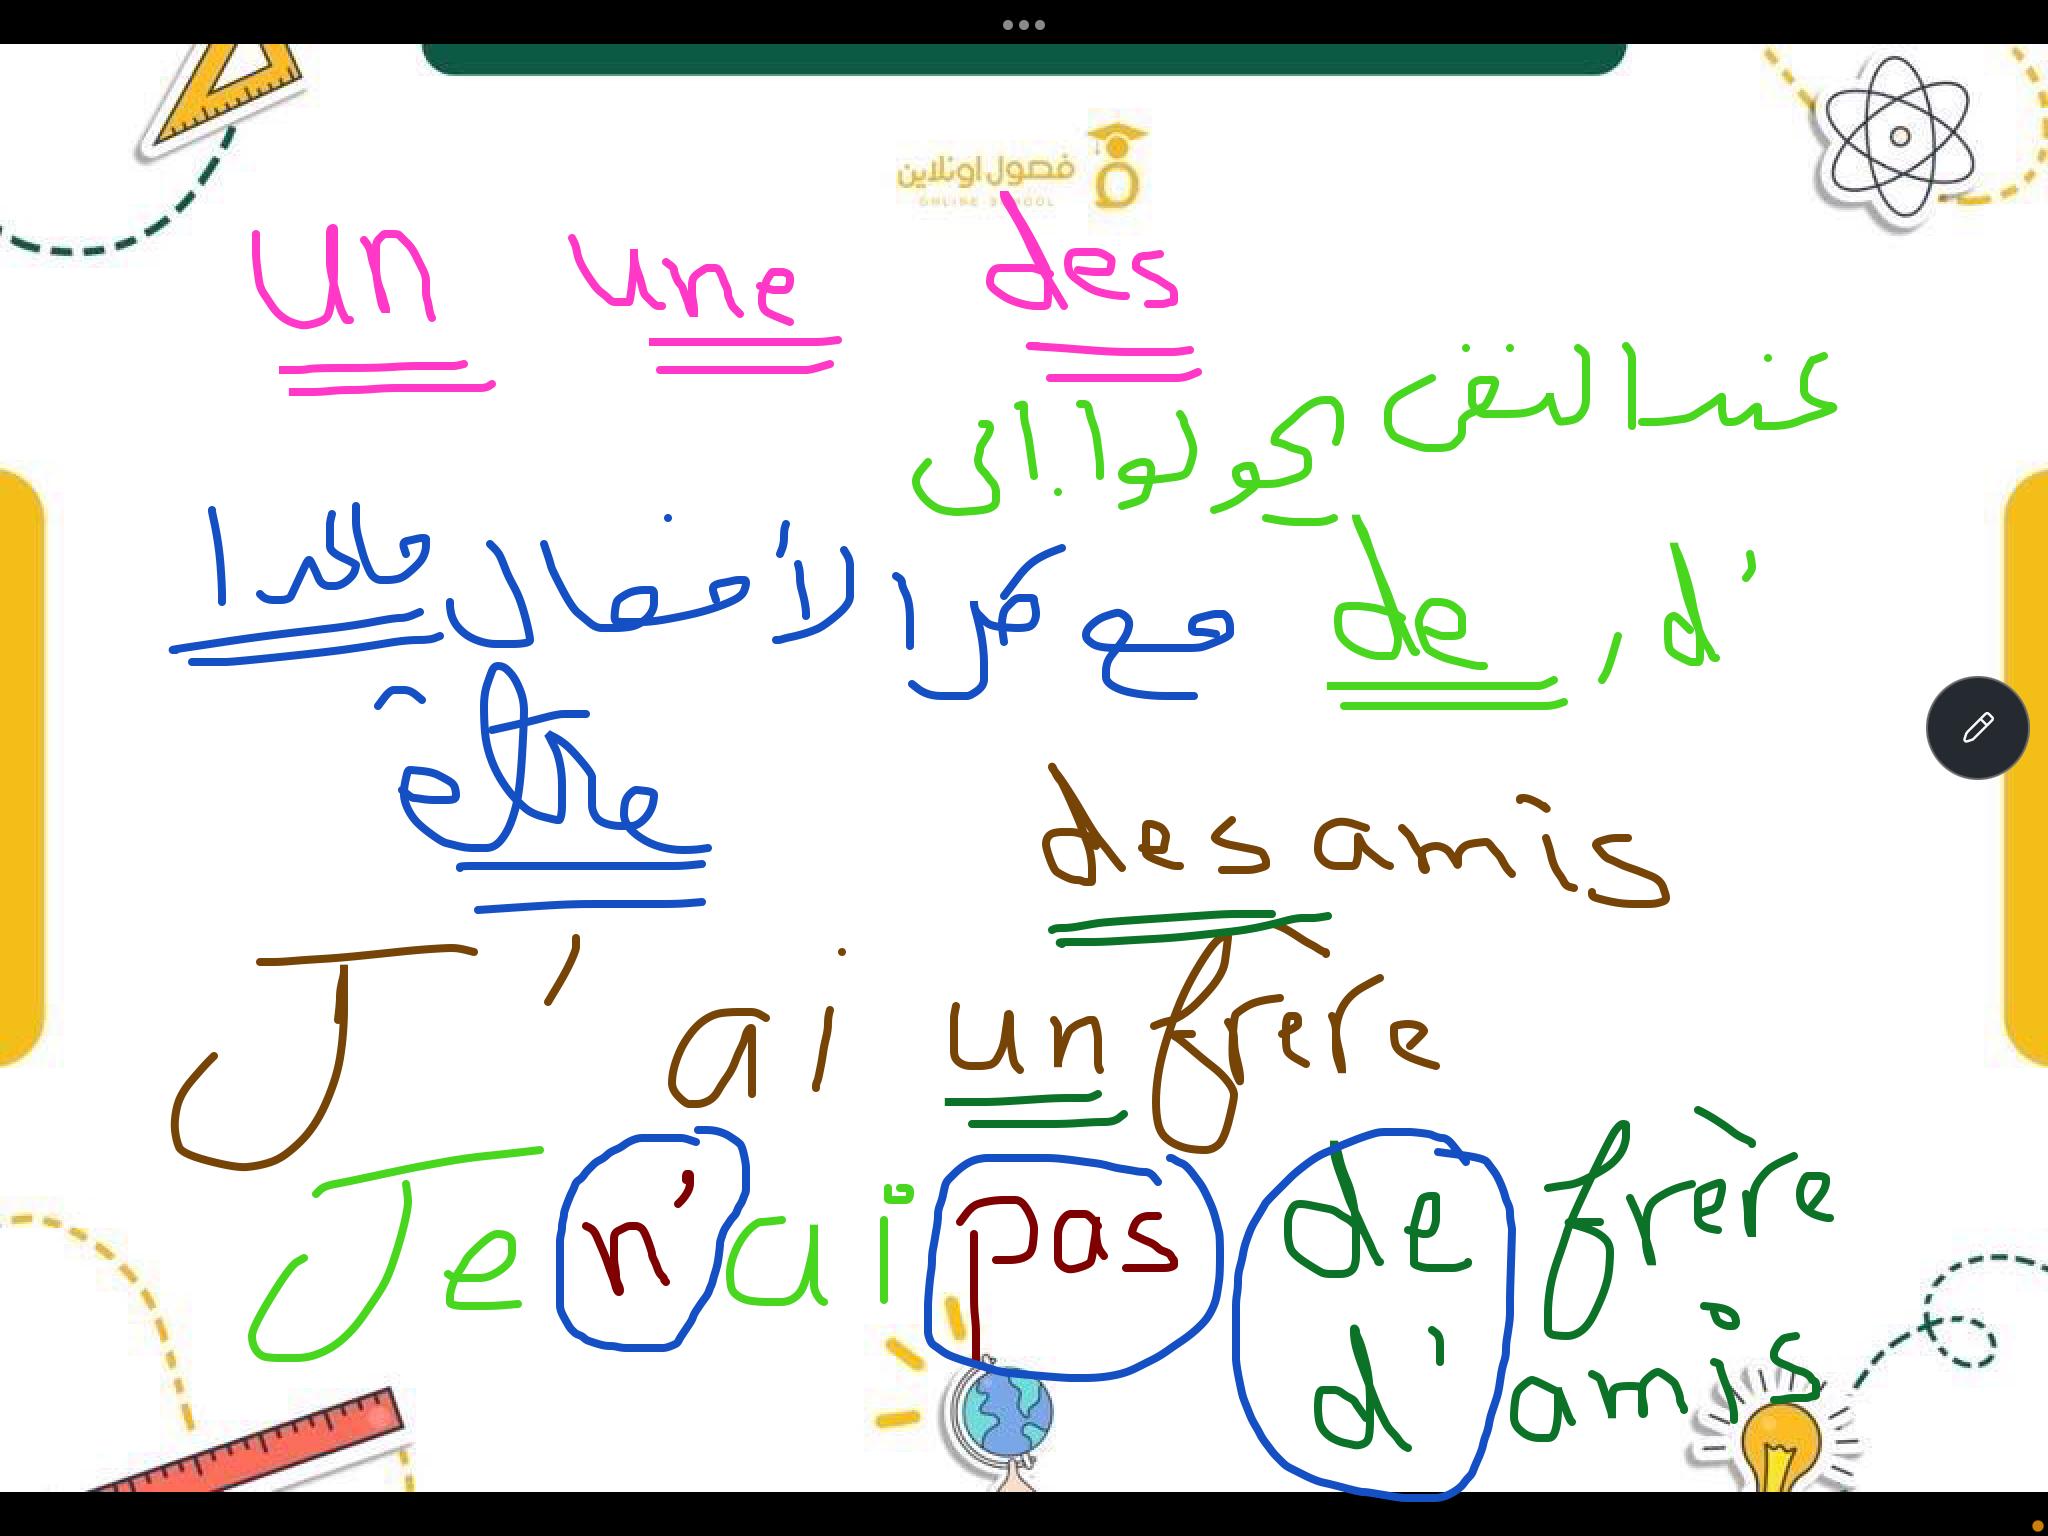 فصول اونلاين
ONLINE SCHOOL
un une des
عند النفى
يحولوا الى
de , d'
مع كل الأفعال ماعدا
être
des amis
J'ai un frère
Je n'ai pas de frère
d'amis